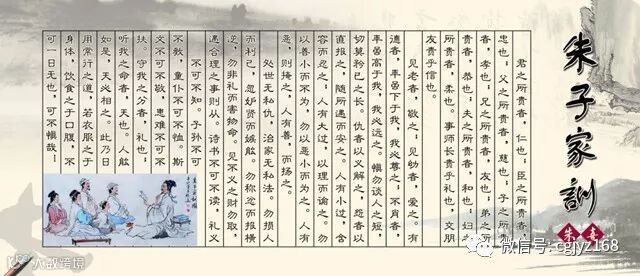 朱子家訓
朱熹
君之所贵者，仁也；臣之所贵者，
忠也；父之所贵者，慈也；子之所
贵者，孝也；兄之所贵者，友也；弟之所
贵者，恭也；夫之所贵者，和也；妇之
所贵者，柔也。事师长贵乎礼也，交朋
友贵乎信也。
见老者，敬之；见幼者，爱之。有
德者，年虽下于我，我必尊之；不肖者，
年虽高于我，我必远之。慎勿谈人之短，
切莫矜己之长。仇者以义解之，怨者以
直报之，随所遇而安之。人有小过，含
容而忍之；人有大过，以理而谕之。勿
以善小而不为，勿以恶小而为之。人有
恶，则掩之；人有善，而扬之。
处世无私仇，治家无私法。勿损人
而利己，勿妒贤而嫉能。勿称忿而报横
逆，勿非礼而害物命。见不义之财勿取，
遇合理之事则从。诗书不可不读，礼义
不可不知。子孙不可
不教，童仆不可不恤。斯
文不可不敬，患难不可不
扶。守我之分者，礼也；
听我之命者，天也。人能
如是，天必相之。此乃日
用常行之道，若衣服之于
身体，饮食之于口腹，不
可一日无也，可不慎哉！
微信号: cgjyz168
大数跨境